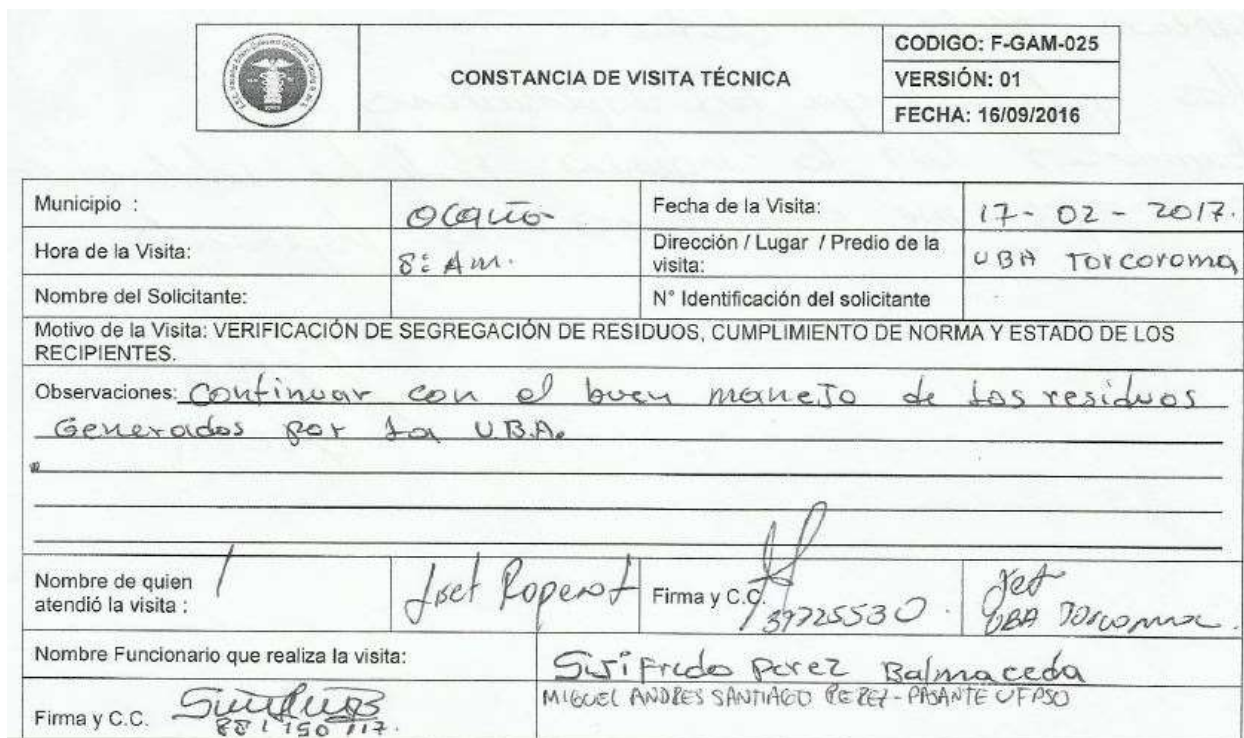 CONSTANCIA DE VISITA TÉCNICA
CODIGO: F-GAM-025
VERSIÓN: 01
FECHA: 16/09/2016
Municipio : Ocaña
Fecha de la Visita: 17-02-2017.
Hora de la Visita: 8: Am.
Dirección / Lugar / Predio de la visita: UBA Torcoroma
Nombre del Solicitante:
N° Identificación del solicitante
Motivo de la Visita: VERIFICACIÓN DE SEGREGACIÓN DE RESIDUOS, CUMPLIMIENTO DE NORMA Y ESTADO DE LOS
RECIPIENTES.
Observaciones: Continuar con el buen maneJo de Los residuos
Generados por La U.B.A.
Nombre de quien
atendió la visita :
Firma y C.C. 39725530.
UBA Torcoroma.
Nombre Funcionario que realiza la visita: Sirifredo Perez Balmaceda
MIGUEL ANDRES SANTIAGO PEREZ - PASANTE UFPSO
Firma y C.C. 88 1 150 117.